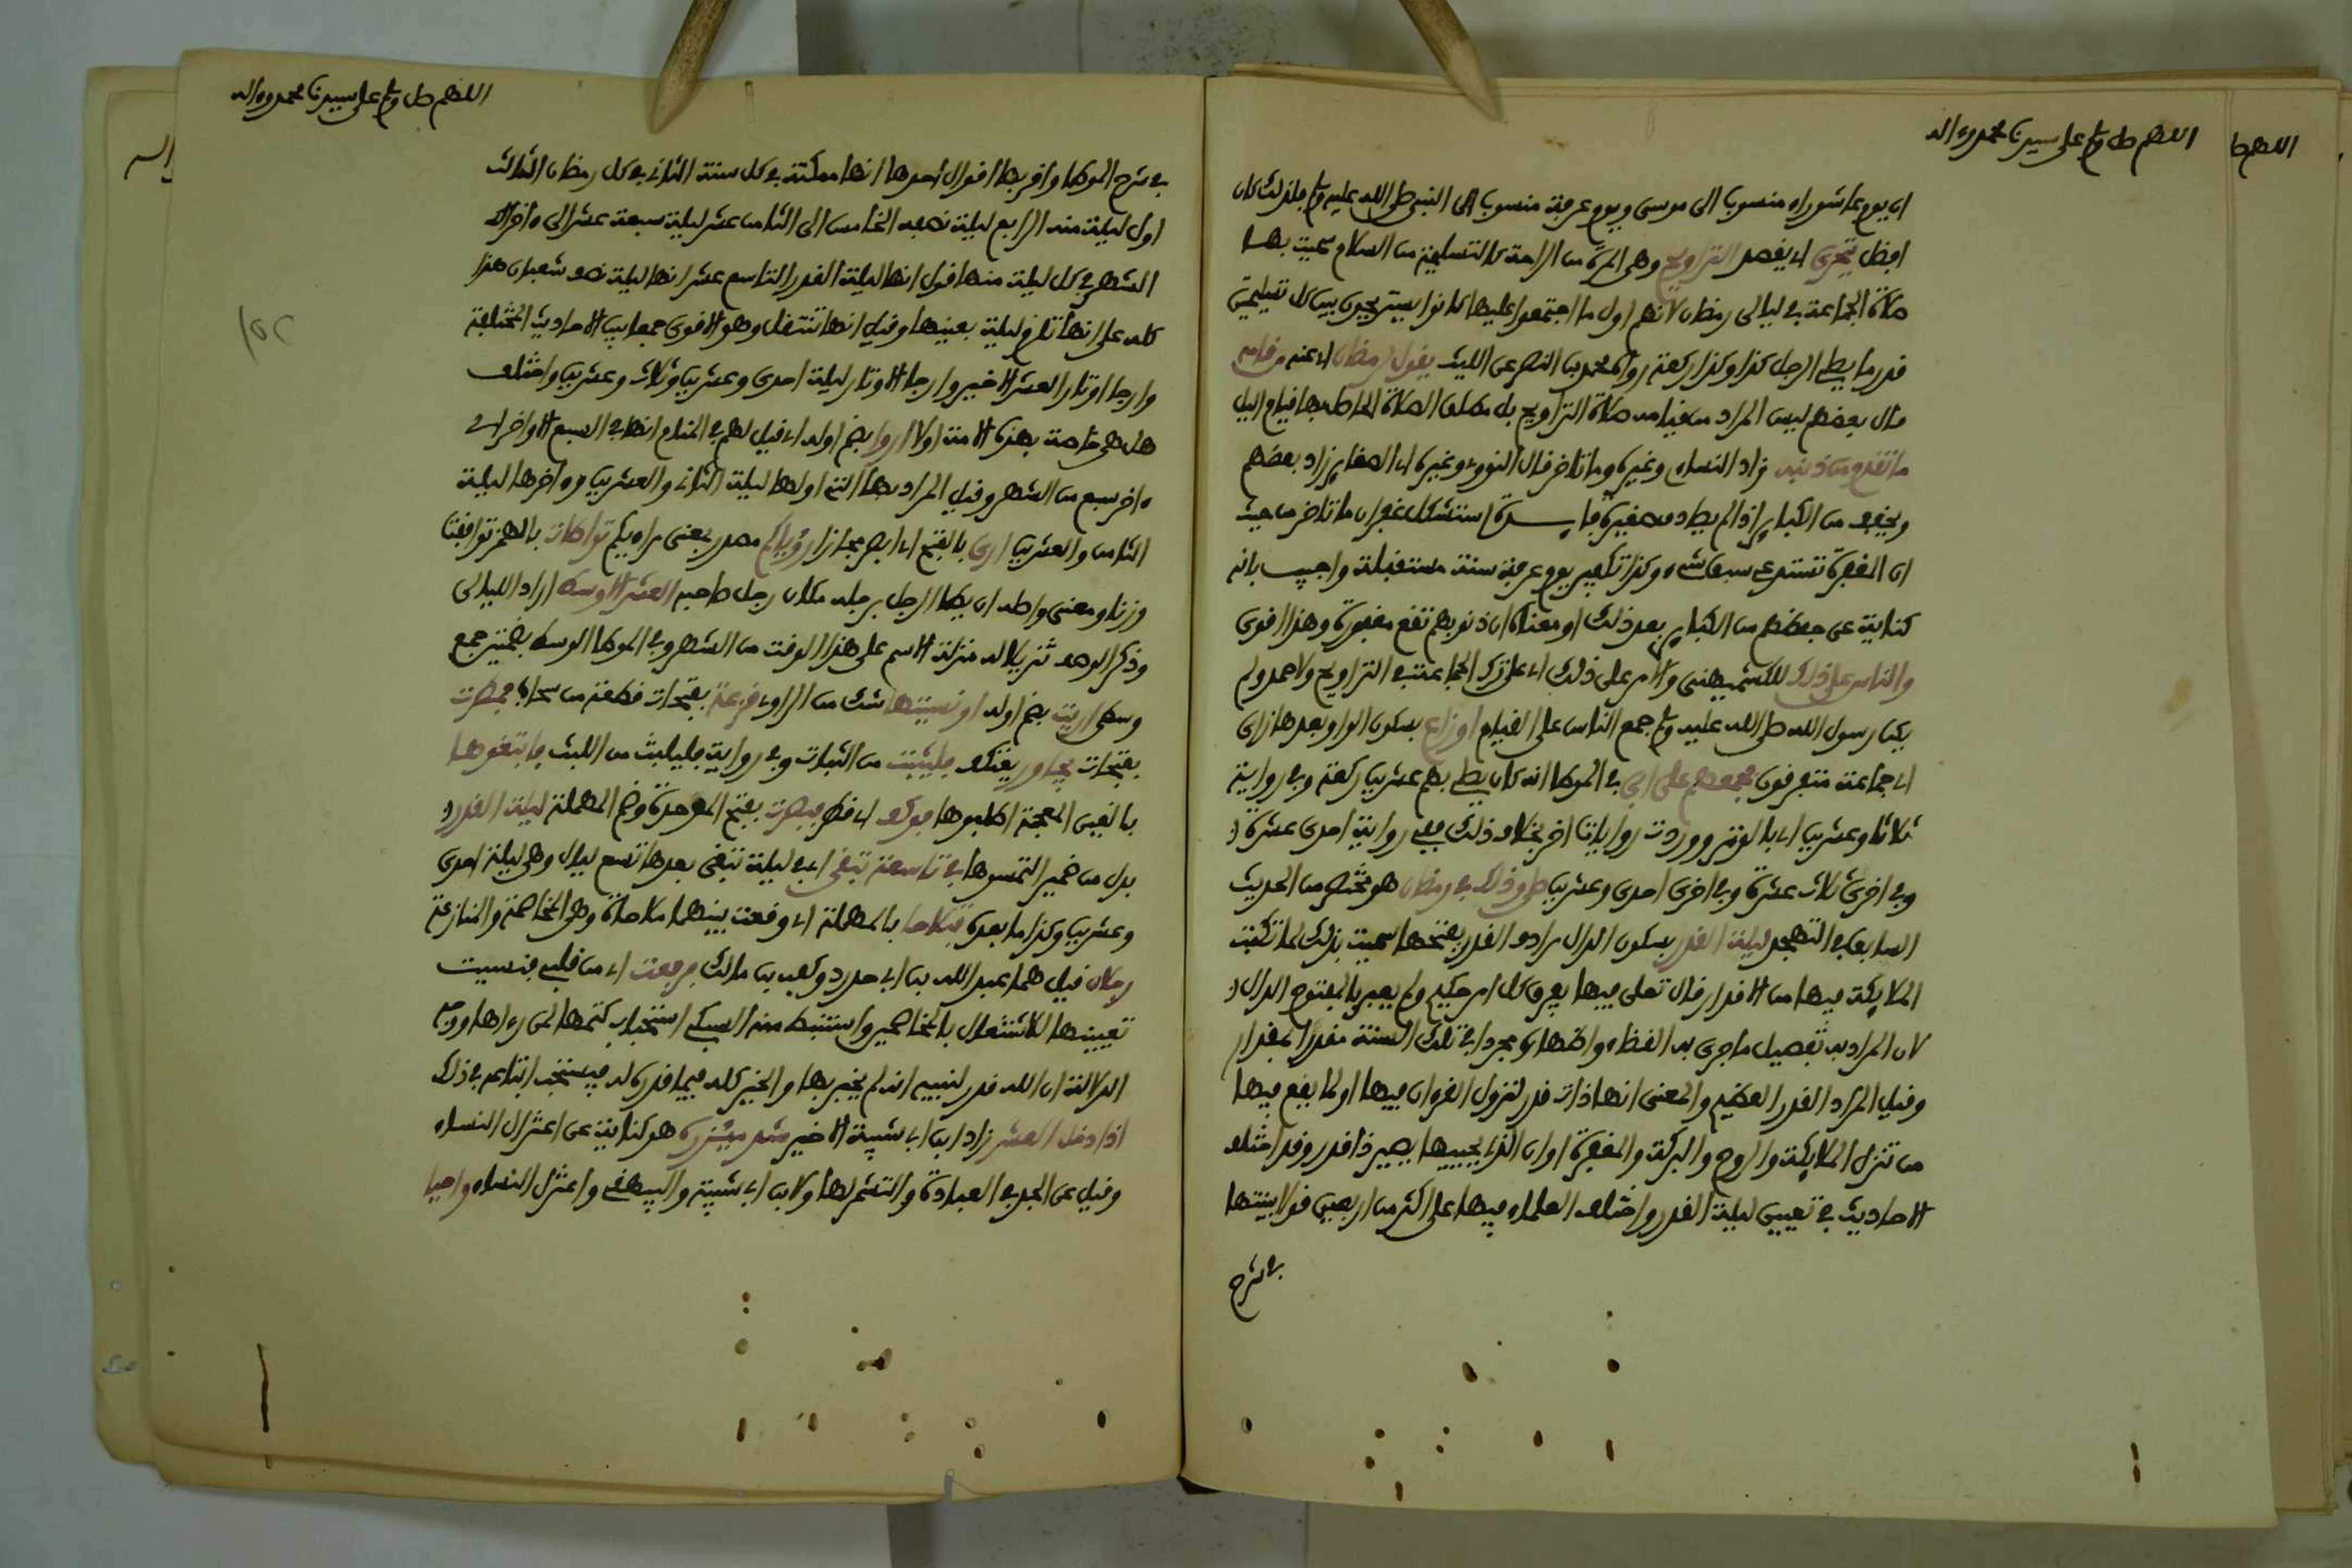 اللهم صل وسلم على سيدنا محمد وءاله
ان يوم عاشوراء منسوب الى موسى ويوم عرفة منسوب الى النبي صلى الله عليه وسلم فلذلك كان
افضل يتحرى اي يقصد التراويح وهي المرة من الراحة كالتسليمة من السلام سميت بها
صلاة الجماعة في ليالي رمضان لانهم اول ما اجتمعوا عليها كانوا يستريحون بين كل تسليمتين
قدر ما يصلي الرجل كذا وكذا ركعة رواه محمد بن النصر عن الليث يقول لرمضان اي عنه من قامه
قال بعضهم ليس المراد من قيامه صلاة التراويح بل مطلق الصلاة الحاصل بها قيام اليل
ما تقدم من ذنبه زاد النساءي وغيره وما تاخر قال النووي وغيره اي الصغاير زاد بعضهم
ويخفف من الكباير اذا لم يصادف صغيرة فايدة استشكل غفران ما تاخر من حيث
ان المغفرة تستدعي سبق شيء وكذا تكفير يوم عرفة سنة مستقبلة واجيب بانه
كناية عن حفظهم من الكباير بعد ذلك او معناه ان ذنوبهم تقع مغفورة وهذا اقوى
والناس على ذلك للكشميهني والامر على ذلك اي على ترك الجماعة في التراويح ولاحمد ولم
يكن رسول الله صلى الله عليه وسلم جمع الناس على القيام اوزاع بسكون الواو بعدها زاي
اي جماعة متفرقون فجمعهم على ابي في الموطا انه كان يصلي بهم عشرين ركعة وفي رواية
ثلاثا وعشرين اي بالوتر ووردت روايات اخر بخلاف ذلك ففي رواية احدى عشرة
وفي اخرى ثلاث عشرة وفي اخرى احدى وعشرين صلى وذلك في رمضان هو مختصر من الحديث
السابق في التهجد ليلة القدر بسكون الدال مرادف القدر بفتحها سميت بذلك لما تكتب
الملايكة فيها من الاقدار قال تعلى فيها يفرق كل امر حكيم ولم يعبر بالمفتوح الدال
لان المراد به تفصيل ما جرى به القضاء واظهاره مجردا في تلك السنة مقدرا بمقدار
وقيل المراد القدر العظيم والمعنى انها ذات قدر لنزول القرءان فيها او لما يقع فيها
من تنزل الملايكة والروح والبركة والمغفرة او ان الذي يحييها يصير ذا قدر وقد اختلف
الاحاديث في تعيين ليلة القدر واختلف العلماء فيها على اكثر من اربعين قولا بينتها
في شرح
اللهم صل وسلم على سيدنا محمد وءاله
في شرح الموطا واقربها اقوال احدها انها ممكنة في كل سنة الثاني في كل رمضان الثالث
اول ليلة منه الرابع ليلة نصفه الخامس الى الثامن عشر ليلة سبعة عشر الى ءاخر
الشهر في كل ليلة منها قول انها ليلة القدر التاسع عشر انها ليلة نصف شعبان هذا
كله على انها تلزم ليلة بعينها وقيل انها تنتقل وهو الاقوى جمعا بين الاحاديث المختلفة
وارجا اوتار العشر الاخير وارجا الاوتار ليلة احدى وعشرين وثلاث وعشرين واختلف
هل هي خاصة بهذه الامة اولا اروا بضم اوله اي قيل لهم في المنام انها في السبع الاواخر اي
ءاخر سبع من الشهر وقيل المراد بها التي اولها ليلة الثاني والعشرين وءاخرها ليلة
الثامن والعشرين ارى بالفتح اي ابصر مجازا رؤياكم مصدر بمعنى مراءيكم تواطات بالهمز توافقت
وزنا ومعنى واصله ان يطا الرجل برجله مكان رجل صاحبه العشر الاوسط اراد الليالي
وذكر الوصف تنزيلا له منزلة الاسم على هذا الوقت من الشهر وفي الموطا الوسط بضمتين جمع
وسطى اريت بضم اوله او نسيتها شك من الراوي قزعة بفتحات قطعة من سحاب فمطرت
بفتحات يجاور يعتكف فليثبت من الثبات وفي رواية فليلبث من اللبث فابتغوها
بالغين المعجمة اطلبوها فوكف اي قطر فبصرت بفتح الموحدة وضم المهملة ليلة القدر
بدل من ضمير التمسوها في تاسعة تبقى اي في ليلة تبقى بعدها تسع ليال وهي ليلة احدى
وعشرين وكذا ما بعده فتلاحا بالمهملة اي وقعت بينهما ملاحاة وهي المخاصمة والمنازعة
رجلان قيل هما عبد الله بن ابي حدرد وكعب بن مالك فرفعت اي من قلبي فنسيت
تعيينها للاشتغال بالمخاصمين واستنبط منه السبكي استحباب كتمها لمن رءاها ووجه
الدلالة ان الله قدر لنبيه انه لم يخبر بها والخير كله فيما قدره له فيستحب اتباعه في ذلك
اذا دخل العشر زاد ابن ابي شيبة الاخير شد ميزره هو كناية عن اعتزال النساء
وقيل عن الجد في العبادة والتشمر لها ولابن ابي شيبة والبيهقي واعتزل النساء واحيا